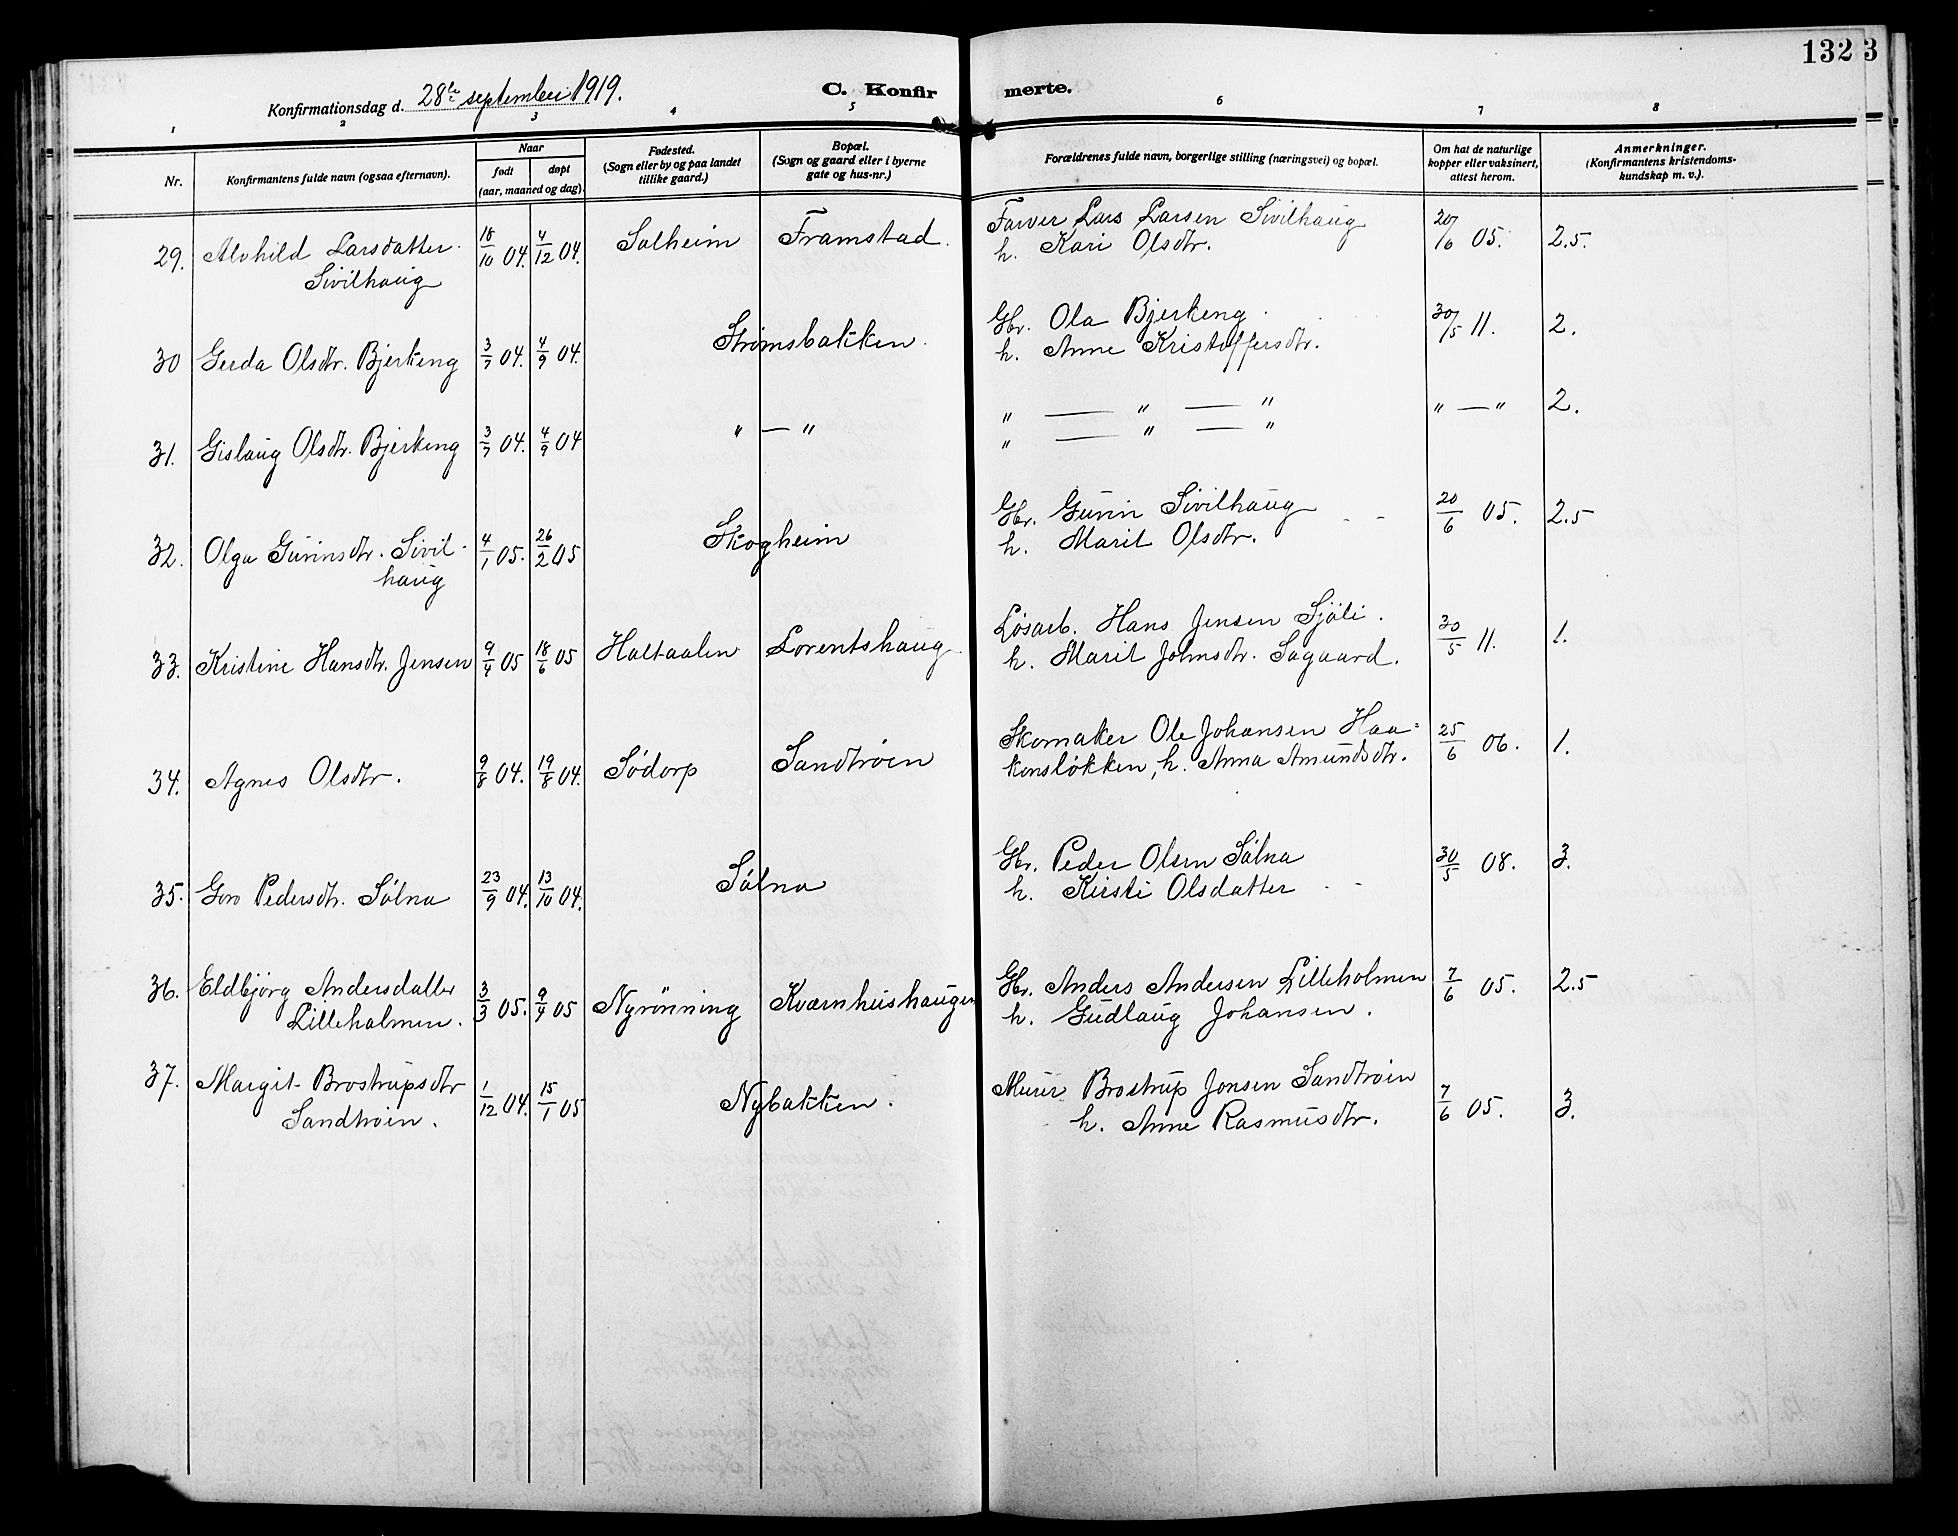 132 3
Konfirmationsdag d. 28de september 1919.
C. Konfirmerte.
1 2 3 4 5 6 7 8
Nr.
Konfirmantens fulde navn (ogsaa efternavn).
Naar
født
døpt
(aar, maaned og dag).
Fødested.
(Sogn eller by og paa landet
tillike gaard.)
Bopæl.
(Sogn og gaard eller i byerne
gate og hus-nr.)
Forældrenes fulde navn, borgerlige stilling (næringsvei) og bopæl.
Om hat de naturlige
kopper eller vaksinert,
attest herom.
Anmerkninger.
(Konfirmantens kristendoms-
kundskap m. v.).
29. Alvhild Larsdatter 18/10 04. 4/12 04. Solheim Framstad. Farver Lars Larsen Sivilhaug 20/6 05. 2.5.
Sivilhaug h. Kari Olsdtr.
30 Gerda Olsdtr. Bjerkeng 3/7 04. 4/9 04. Strømsbakken. Gbr. Ola Bjerkeng. 30/5 11. 2.
h. Anne Kristoffersdtr.
31. Gislaug Olsdtr. Bjerkeng 3/7 04. 4/9 04 " — " " — " — " " — " 2.
" — " — "
32. Olga Gurinsdtr. Sivil- 4/1 05. 26/2 05 Skogheim Gbr. Gurin Sivilhaug 20/6 05. 2.5
haug h. Marit Olsdtr.
33. Kristine Hansdtr. Jensen 9/4 05 18/6 05 Haltaalen Lorentshaug Løsarb. Hans Jensen Sjøli. 30/5 11. 1.
h. Marit Johnsdtr. Sagaard.
34. Agnes Olsdtr. 9/8 04. 19/8 04. Sødorp Sandtrøen Skomaker Ole Johansen Haa= 25/6 06. 1.
kensløkken, h. Anna Amundsdtr.
35. Goro Pedersdtr. Sølna 23/9 04. 13/10 04. Sølna Gbr. Peder Olsen Sølna 30/5 08. 3.
h. Kirsti Olsdatter
36. Eldbjørg Andersdatter 3/3 05. 9/4 05 Nyrønning Kværnhushaugen Gbr. Anders Andersen Lilleholmen 7/6 05. 2.5
Lilleholmen. h. Gudlaug Johansen.
37. Margit Brostrupsdtr 1/12 04. 15/1 05 Nybakken. Murer Brostrup Jonsen Sandtrøen 7/6 05. 3.
Sandtrøen. h. Anne Rasmusdtr.